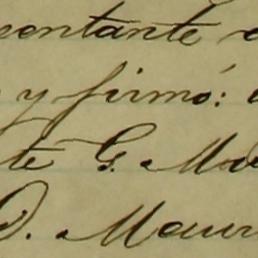 sentante
y firmó:
te G. Ma
D. Maur